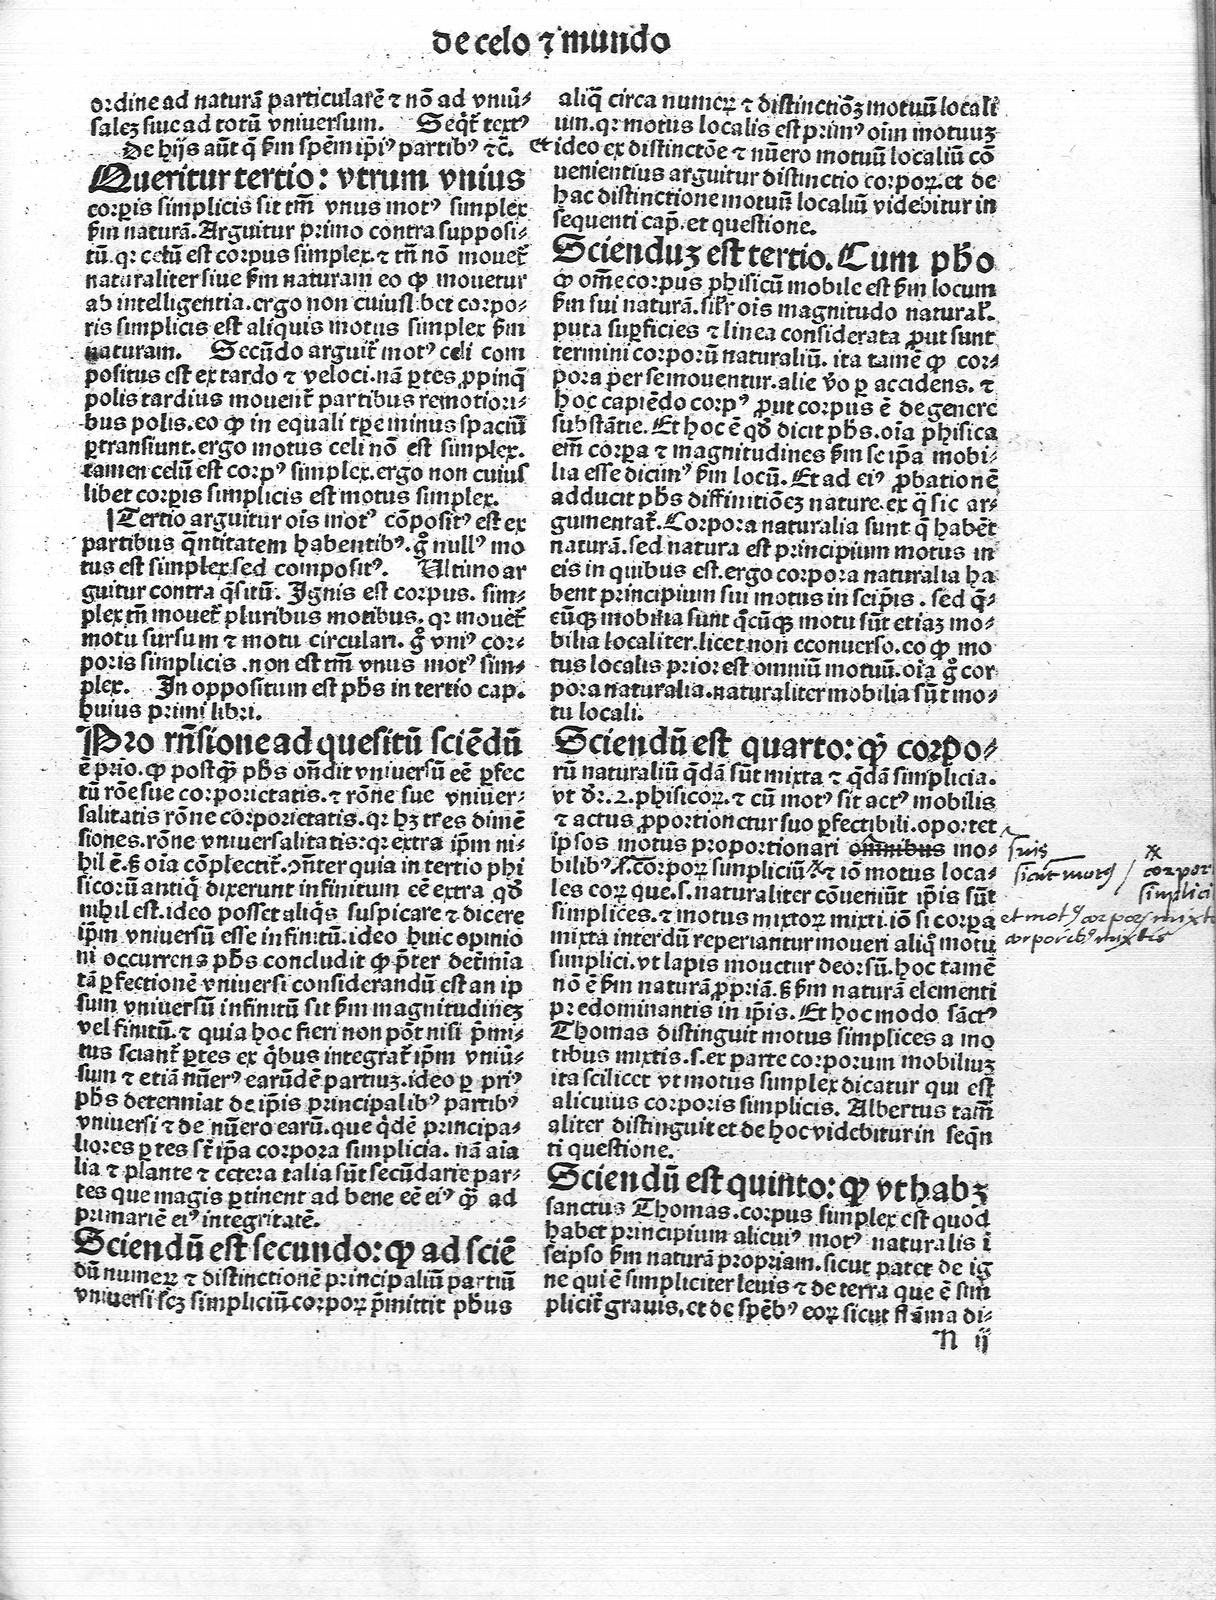 de celo ⁊ mundo
ordine ad naturā particularē ⁊ nō ad vniū⸗
salēꝫ siue ad totū vniuersum. Seqt̄ textꝰ
De hijs aūt q̄ ẜm spēm ip̄iꝰ partibꝰ ⁊c̄.
Queritur tertio: vtrum vnius
corꝑis simplicis sit tm̄ vnus motꝰ simplex
ẜm naturā. Arguitur primo contra supposi⸗
tū. qꝛ celū est corpus simplex. ⁊ tn̄ nō mouet᷑
naturaliter siue ẜm naturam eo ꝙ mouetur
ab intelligentia. ergo non cuiuslibet corpo⸗
ris simplicis est aliquis motus simplex ẜm
naturam. Secūdo arguit᷑ motꝰ celi com
positus est ex tardo ⁊ veloci. nā ꝑtes ꝓpinq̄
polis tardius mouent᷑ partibus remotiori⸗
bus polis. eo ꝙ in equali tꝑe minus spaciū
ꝑtransiunt. ergo motus celi nō est simplex.
tamen celū est corpꝰ simplex. ergo non cuius
libet corꝑis simplicis est motus simplex.
Tertio arguitur oīs motꝰ cōpositꝰ est ex
partibus q̄ntitatem habentibꝰ. g̊ nullꝰ mo
tus est simplex sed compositꝰ. Ultimo ar
guitur contra q̄sitū. Ignis est corpus. sim⸗
plex tn̄ mouet᷑ pluribus motibus. qꝛ mouet᷑
motu sursum ⁊ motu circulari. g̊ vniꝰ cor⸗
poris simplicis .non est tm̄ vnus motꝰ sim⸗
plex. In oppositum est ph̄s in tertio cap.
huius primi libri.
Pro rn̄sione ad quesitū sciēdū
ē prīo. ꝙ postꝙ̄ ph̄s on̄dit vniuersū eē ꝑfec
tū rōe sue corporietatis. ⁊ rōne sue vniuer⸗
salitatis rōne corporietatis. qꝛ hꝫ tres dimē
siones. rōne vniuersalitatis: qꝛ extra ip̄m ni⸗
hil ē. ꝫ oīa cōplectit᷑. Cōn̄ter quia in tertio phi
sicorū antiq̄ dixerunt infinitum eē extra qd̄
nihil est. ideo posset aliq̄s suspicare ⁊ dicere
ip̄m vniuersū esse infinitū. ideo huic opinio
ni occurrens ph̄s concludit ꝙ p̄ter determīa
tā ꝑfectionē vniuersi considerandū est an ip
sum vniuersū infinitū sit ẜm magnitudineꝫ
vel finitū. ⁊ quia hoc fieri non pōt nisi p̄mi⸗
tus sciant᷑ ꝑtes ex q̄bus integrat᷑ ip̄m vniū⸗
sum ⁊ etiā nūerꝰ earūdē partiuꝫ. ideo ꝑ priꝰ
ph̄s determīat de ip̄is principalibꝰ partibꝰ
vniuersi ⁊ de nūero earū. que q̄dē principa⸗
liores ꝑtes sūt ip̄a corpora simplicia. nā aīa
lia ⁊ plante ⁊ cetera talia sūt secūdarie par⸗
tes que magis ꝑtinent ad bene eē eiꝰ ꝙ̄ ad
primariē eiꝰ integritatē.
Sciendū est secundo: ꝙ ad sciē
dū numeꝝ ⁊ distinctionē principaliū partiū
vniuersi scꝫ simpliciū corpoꝝ p̄mittit ph̄us
aliq̄ circa numeꝝ ⁊ distinctiōꝫ motuū locali
um. qꝛ motus localis est primꝰ oīm motuuꝫ
et ideo ex distinctōe ⁊ nūero motuū localiū cō
uenientius arguitur distinctio corpoꝝ. et de
hac distinctione motuū localiū videbitur in
sequenti cap̄. et questione.
Scienduꝫ est tertio. Cum ph̄o
ꝙ om̄e corpus phisicū mobile est ẜm locum
ẜm sui naturā. silr̄ oīs magnitudo natural᷑.
puta suꝑficies ⁊ linea considerata ꝓut sunt
termini corporū naturaliū. ita tamē ꝙ cor⸗
pora per se mouentur. alie v̄o ꝑ accidens. ⁊
hoc capiēdo corpꝰ ꝓut corpus ē de genere
substātie. Et hoc ē qd̄ dicit ph̄s. oīa phisica
em̄ corꝑa ⁊ magnitudines ẜm se ip̄a mobi⸗
lia esse dicimꝰ ẜm locū. Et ad eiꝰ ꝓbationē
adducit ph̄s diffinitiōeꝫ nature. ex q̄ sic ar⸗
gumentat᷑. Corpora naturalia sunt q̄ habēt
naturā. sed natura est principium motus in
eis in quibus est. ergo corpora naturalia ha
bent principium sui motus in seip̄is . sed q̄⸗
cūqꝫ mobilia sunt q̄cūqꝫ motu sūt etiaꝫ mo⸗
bilia localiter. licet non econuerso. eo ꝙ mo
tus localis prior est omniū motuū. oīa g̊ cor
pora naturalia. naturaliter mobilia sūt mo⸗
tu locali.
Sciendū est quarto: ꝙ corpo⸗
rū naturaliū q̄dā sūt mixta ⁊ q̄dā simplicia.
vt dr̄. 2. phisicoꝝ. ⁊ cū motꝰ sit actꝰ mobilis
⁊ actus ꝓportionetur suo ꝑfectibili. oportet
ipsos motus proportionari omnibus mo⸗
bilibꝰ. corpoꝝ simpliciū ⁊ iō motus loca⸗
les corꝑque .s. naturaliter cōueniūt ip̄is sūt
simplices. ⁊ motus mixtoꝝ mixti. iō si corꝑa
mixta interdū reperiantur moueri aliq̊ motu
simplici. vt lapis mouetur deorsū. hoc tamē
nō ē ẜm naturā ꝓpriā. ꝫ ẜm naturā elementi
predominantis in ip̄is. Et hoc modo sāctꝰ
Thomas distinguit motus simplices a mo
tibus mixtis. s. ex parte corporum mobiliuꝫ
ita scilicet vt motus simplex dicatur qui est
alicuius corporis simplicis. Albertus tam̄
aliter distinguit et de hoc videbitur in seqn̄
ti questione.
Sciendū est quinto: ꝙ vt habꝫ
sanctus Thomas. corpus simplex est quod
habet principium alicuiꝰ motꝰ naturalis ī
seipso ẜm naturā propriam. sicut patet de ig
ne qui ē simpliciter leuis ⁊ de terra que ē sim
plicit᷑ grauis, et de spēbꝰ eoꝝ sicut flāma di⸗
N ij
suis
sicut motꝰ / corpor
simplici
et motꝰ corpoꝝ mixto
corporibꝰ mixtis